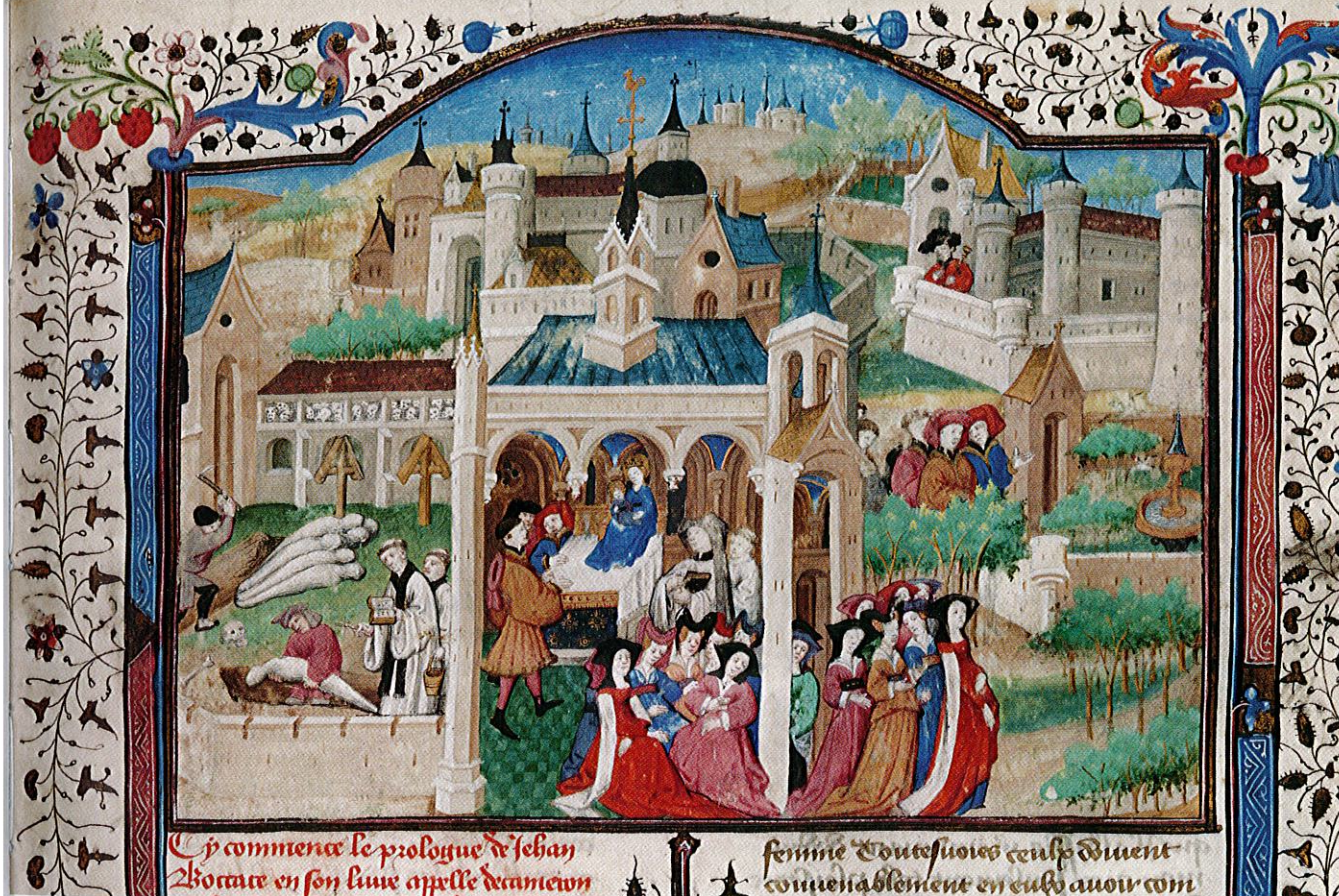 Cy commence le prologue de Jehan
Boccace en son livre appelle decameron
femme Toutesuoies ceulx doivent
convenablement en eulx avoir com